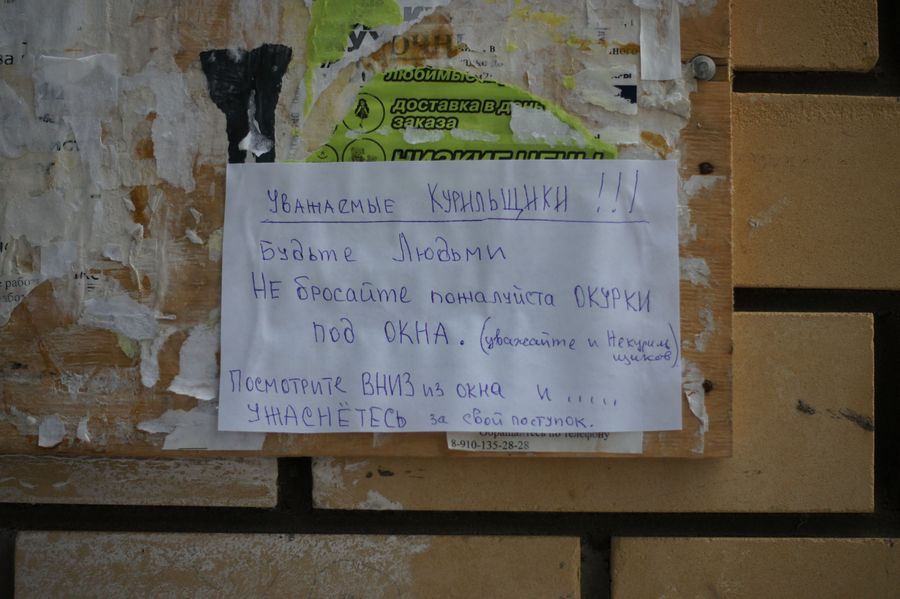 любимые
доставка в день
заказа
НИЗКИЕ ЦЕНЫ
Уважаемые Курильщики !!!
Будьте Людьми
НЕ бросайте пожалуйста ОКУРКИ
под ОКНА. (уважайте и Некуриль
щиков)
Посмотрите ВНИЗ из окна и .....
УЖАСНЁТЕСЬ за свой поступок.
Обращаться по телефону
8-910-135-28-28